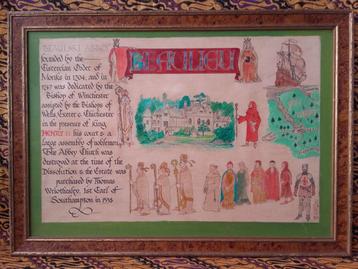 BEAULIEU ABBEY
founded by the
Cistercian Order of
Monks in 1204, and in
1247 was dedicated by the
Bishop of Winchester
assisted by the Bishops of
Wells, Exeter & Chichester
in the presence of King
HENRY III his court & a
large assembly of noblemen.
The Abbey Church was
destroyed at the time of the
Dissolution & the Estate was
purchased by Thomas
Wriothesley, 1st Earl of
Southampton in 1538
BEAULIEU